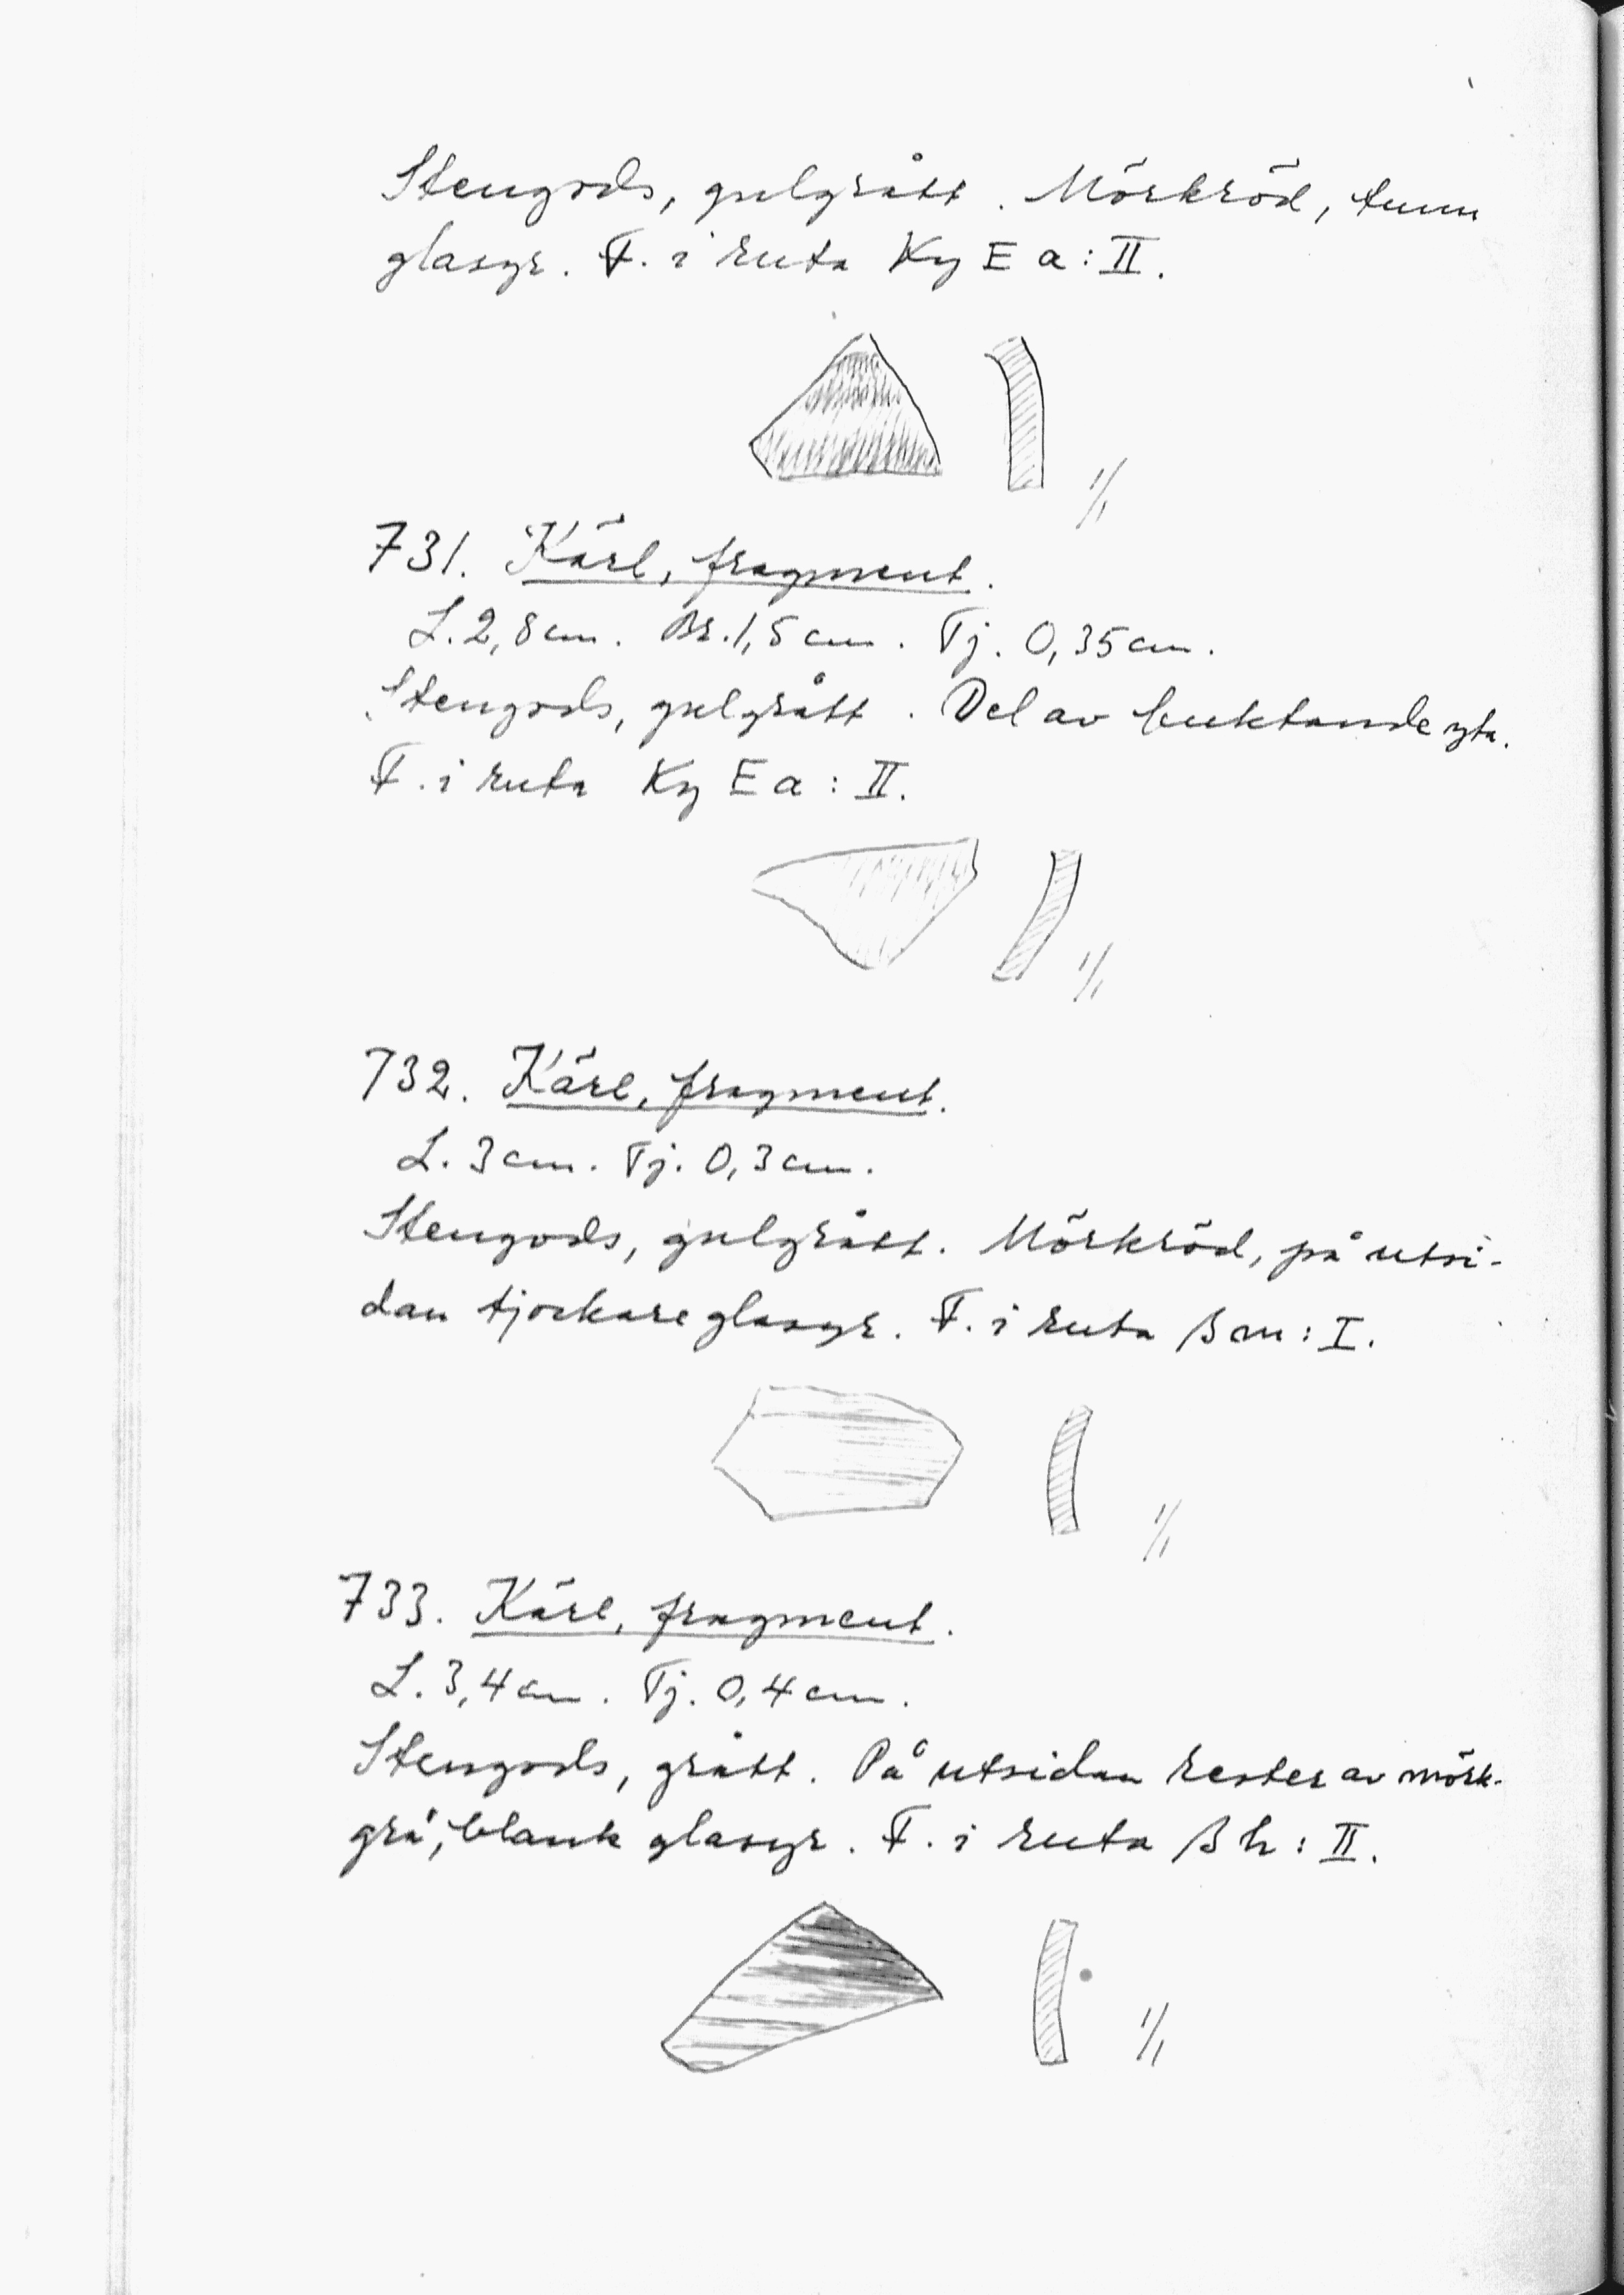 Stengods, gulgrått. Mörkröd, tunn
glasyr. F. i ruta Ky E a : II.
1/1
731. Kärl, fragment.
L. 2,8 cm. Br. 1,5 cm. Tj. 0,35 cm.
Stengods, gulgrått. Del av buktande yta.
F. i ruta Ky E a : II.
1/1
732. Kärl, fragment.
L. 3 cm. Tj. 0,3 cm.
Stengods, gulgrått. Mörkröd, på utsi-
dan tjockare glasyr. F. i ruta ß m : I.
1/1
733. Kärl, fragment.
L. 3,4 cm. Tj. 0,4 cm.
Stengods, grått. På utsidan rester av mörk-
grå, blank glasyr. F. i ruta ß h : II.
1/1